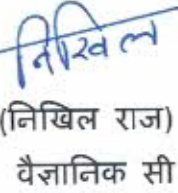 निखिल
(निखिल राज)
वैज्ञानिक सी